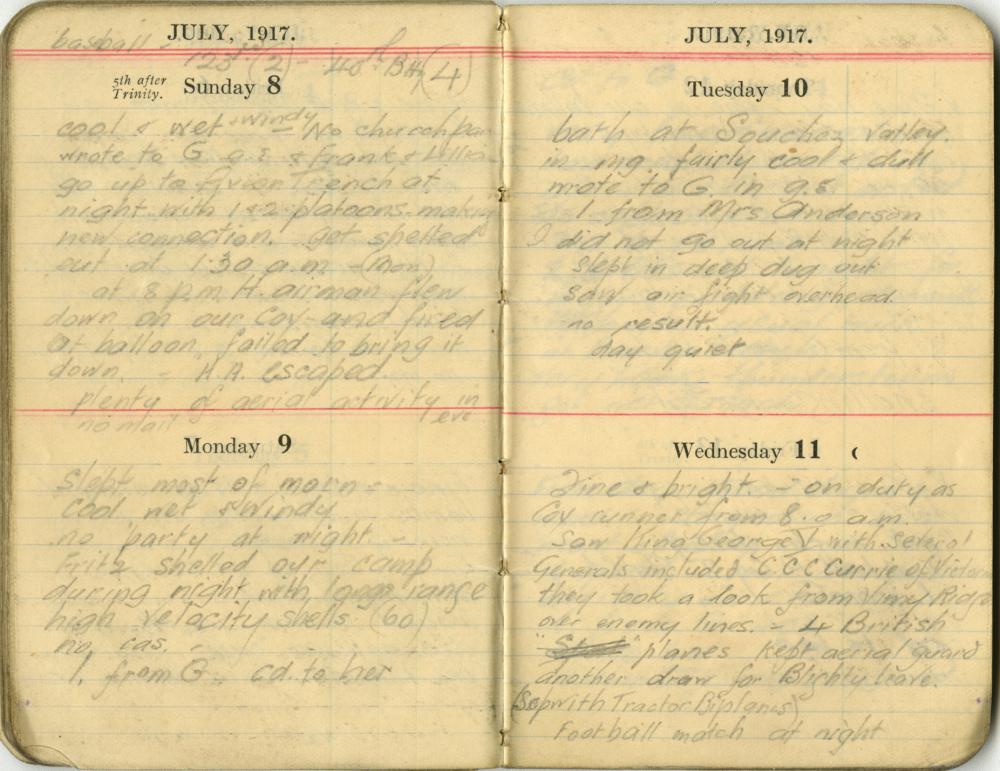 JULY, 1917.
baseball -
123rd (2) - 40th Bty (4)
5th after
Trinity.
Sunday 8
cool & wet & windy - No church par
wrote to G. g.e. & Frank & Lillian
go up to Trench at
night with 1 & 2 platoons. making
new connection. Get shelled
out at 1.30 a.m - (Mon)
at 8 p.m. H. airman flew
down on our Coy - and fired
at balloon, failed to bring it
down. - H.A. escaped.
plenty of aerial activity in
eve
no mail
Monday 9
Slept most of morn -
Cool wet & windy
no party at night -
Fritz shelled our camp
during night with long range
high velocity shells (60)
no cas. -
1. from G. cd. to her
JULY, 1917.
Tuesday 10
bath at Souchez Valley.
in mg fairly cool & dull
wrote to G. in g.e.
1. from Mrs Anderson
I did not go out at night
slept in deep dug out
saw air fight overhead.
no result.
day quiet
Wednesday 11
Fine & bright. - on duty as
Coy runner from 8.0 a.m.
Saw King George V with several
Generals included C C C Currie of Victoria
they took a look from Vimy Ridge
over enemy lines. - 4 British
planes kept aerial guard
another draw for Blighty leave.
(Sopwith Tractor Biplanes)
Football match at night